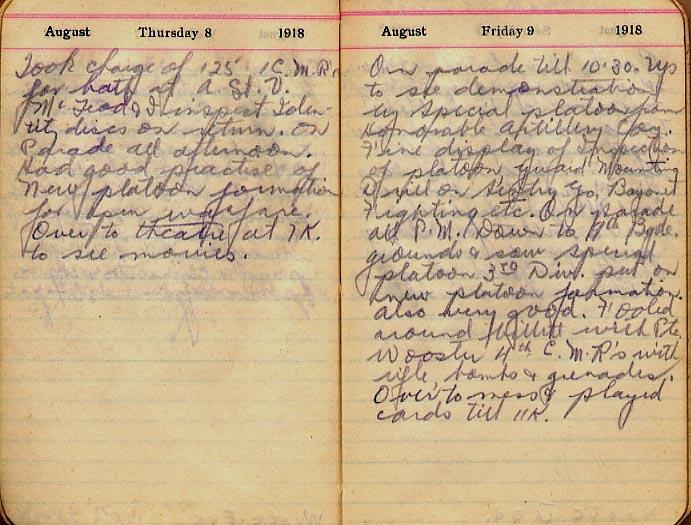 August Thursday 8 1918
Took charge of 125 1 C.M.R's
for bath at A. St. V.
McLeod & I inspect Iden-
tity discs on return. On
Parade all afternoon.
Had good practise of
New platoon formation
for open warfare.
Over to theatre at 7 K.
to see movies.
August Friday 9 1918
On parade till 10.30. Up
to see demonstration
by Special platoon from
Honorable Artillery Coy.
Fine display of Inspection
of platoon Guard Mounting
Drill on Sentry Go, Bayonet
Fighting etc. On parade
all P.M. Down to 9th Bgde.
grounds & saw special
platoon 3rd Div. put on
new platoon formation.
also very good. Fooled
around with Pte
Wooster 4th C.M.R's with
rifle, bombs & grenades.
Over to mess & played
cards till 11K.